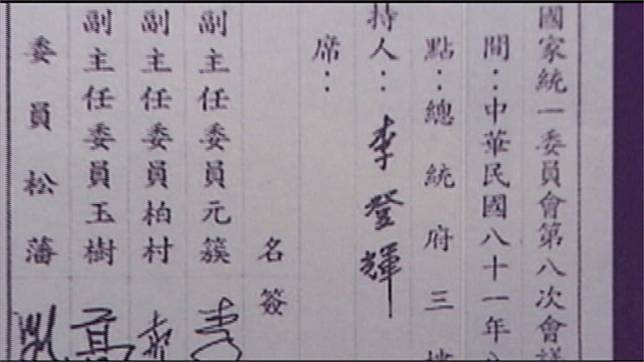 國家統一委員會第八次會議
間：中華民國八十一年八
點：總統府三樓
持人：李登輝
席：
名簽
副主任委員元簇 李
副主任委員柏村
副主任委員玉樹 高
委員松藩